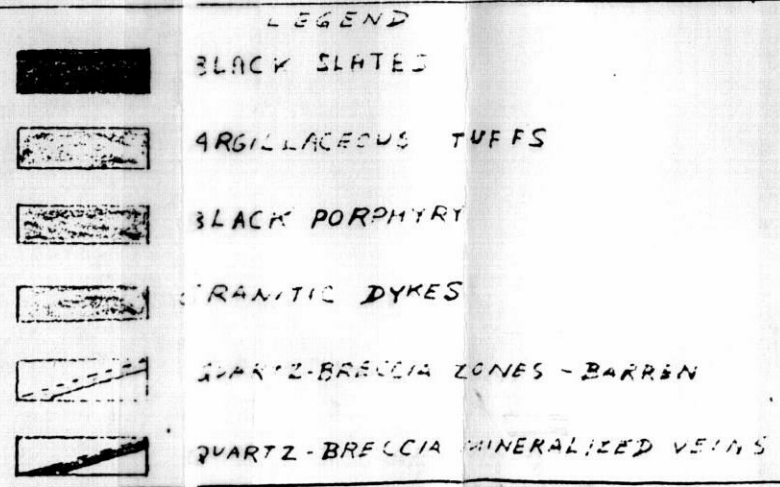 LEGEND
BLACK SLATES
ARGILLACEOUS TUFFS
BLACK PORPHYRY
GRANITIC DYKES
QUARTZ-BRECCIA ZONES - BARREN
QUARTZ-BRECCIA MINERALIZED VEINS